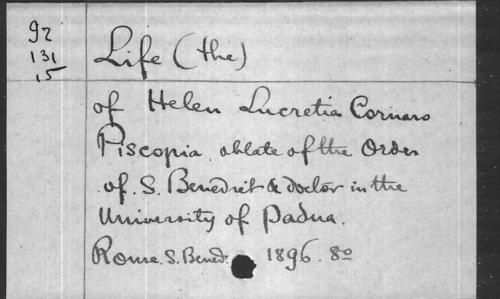 92
131
15
Life (the)
of Helen Lucretia Cornaro
Piscopia, oblate of the Order
of S. Benedict & doctor in the
University of Padua.
Rome. S. Bened. 1896. 8º